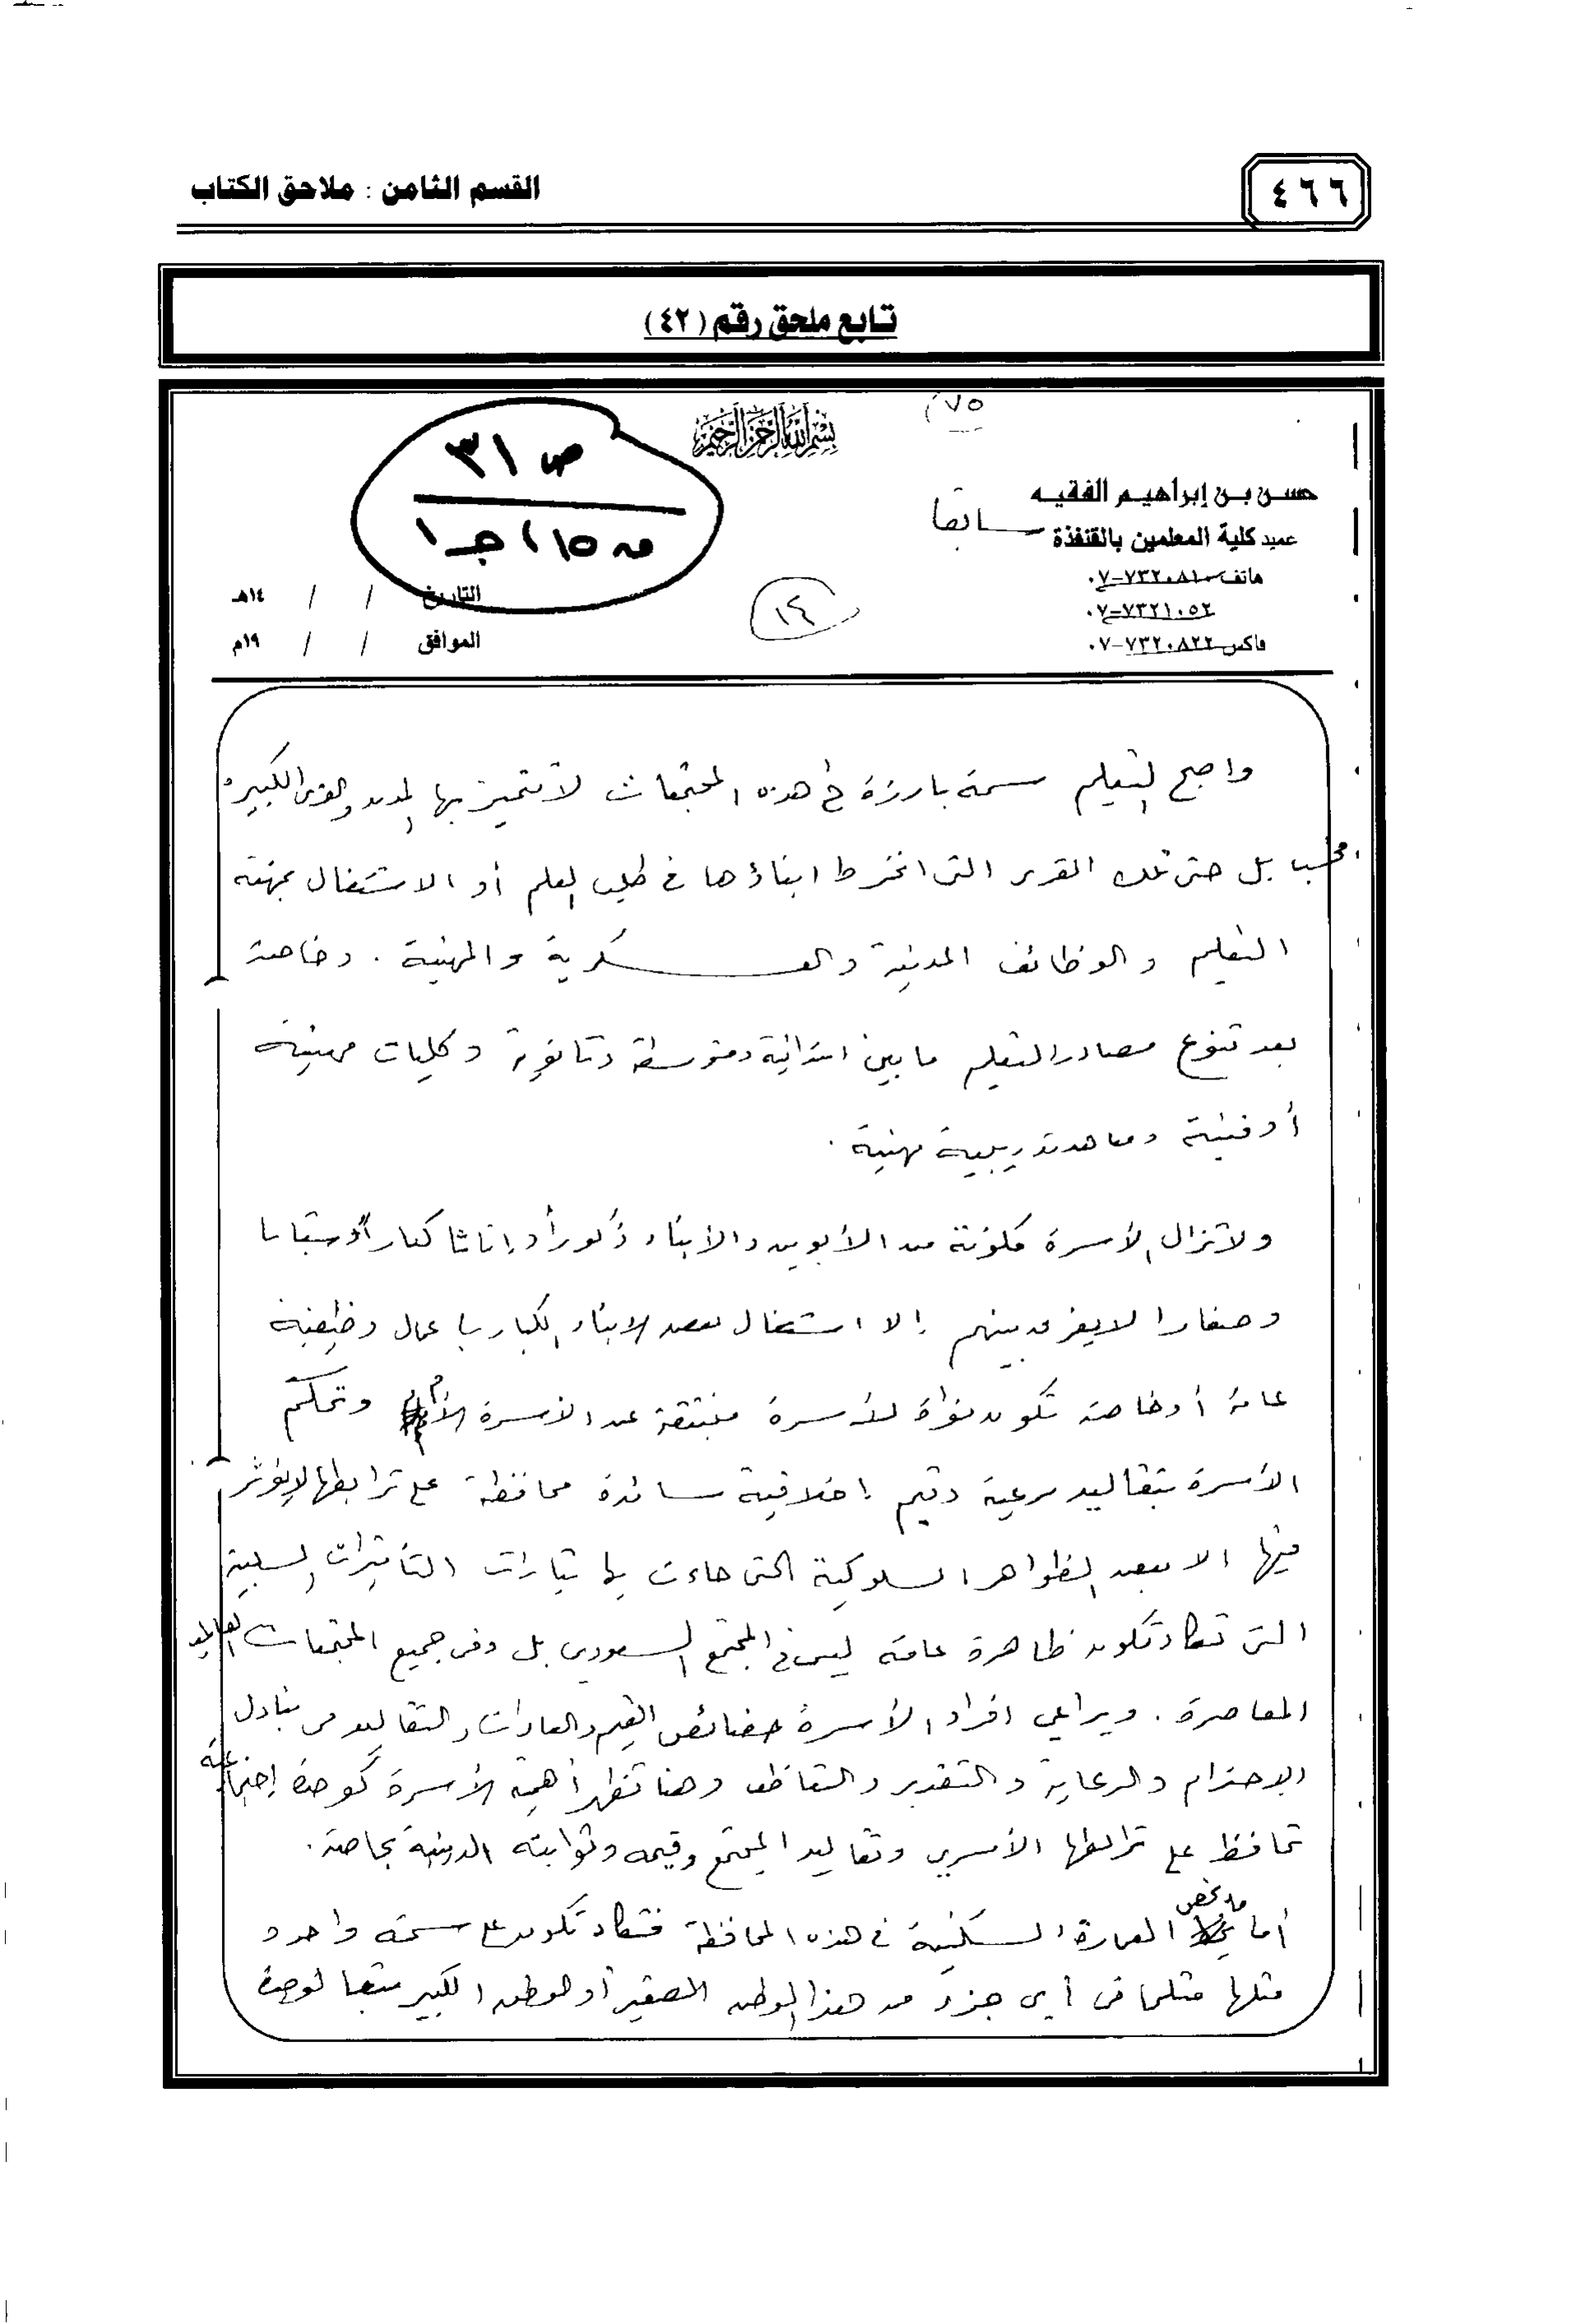 ٤٦٦
القسم الثامن : ملاحق الكتاب
تابع ملحق رقم (٤٢)
(٧٥
بسم الله الرحمن الرحيم
ص ٣١
ق ١٥ ، جـ ١
حسن بن إبراهيم الفقيه
عميد كلية المعلمين بالقنفذة سابقا
هاتف ٧٣٢٠٨١٠-٠٧
٧٣٢١٠٥٢-٠٧
فاكس ٧٣٢٠٨٢٢-٠٧
١٤
التاريخ / / ١٤هـ
الموافق / / ١٩م
واصبح التعليم سمة بارزة في هذه المجتمعات لا تتميز بها المدن والقرى الكبيرة
فحسب بل حتى تلك القرى التي انخرط ابناؤها في طلب العلم أو الاشتغال بمهنة
التعليم والوظائف المدنية والعسكرية والمهنية . وخاصة
بعد تنوع مصادر التعليم ما بين ابتدائية ومتوسطة وثانوية وكليات مهنية
أو فنية ومعاهد تدريبية مهنية .
ولا تزال الأسرة مكونة من الأبوين والأبناء ذكوراً وإناثا كباراً وشبابا
وصغارا لا يفرق بينهم إلا اشتغال بعض الابناء الكبار باعمال وظيفية
عامة أو خاصة تكون نواة لأسرة منبثقة عن الأسرة الأم وتحكم
الأسرة بتقاليد مرعية وقيم إخلاقية سائدة محافظة على ترابطها لا يؤثر
فيها الا بعض الظواهر السلوكية التي جاءت بها تيارات التأثيرات السلبية
التي تكاد تكون ظاهرة عامة ليس في المجتمع السعودي بل وفي جميع المجتمعات العالمية
المعاصرة . ويراعي افراد الأسرة خصائص القيم والعادات والتقاليد من تبادل
الاحترام والرعاية والتقدير والتعاطف وهنا تظهر أهمية الأسرة كوحدة إجتماعية
تحافظ على ترابطها الأسري وتقاليد المجتمع وقيمه وثوابته الدينية بخاصة .
أما ما يخص العمارة السكنية في هذه المحافظة فتكاد تكون على سمة واحدة
مثلها مثلما في أي جزء من هذا الوطن الصغير أو الوطن الكبير تبعا لوحدة